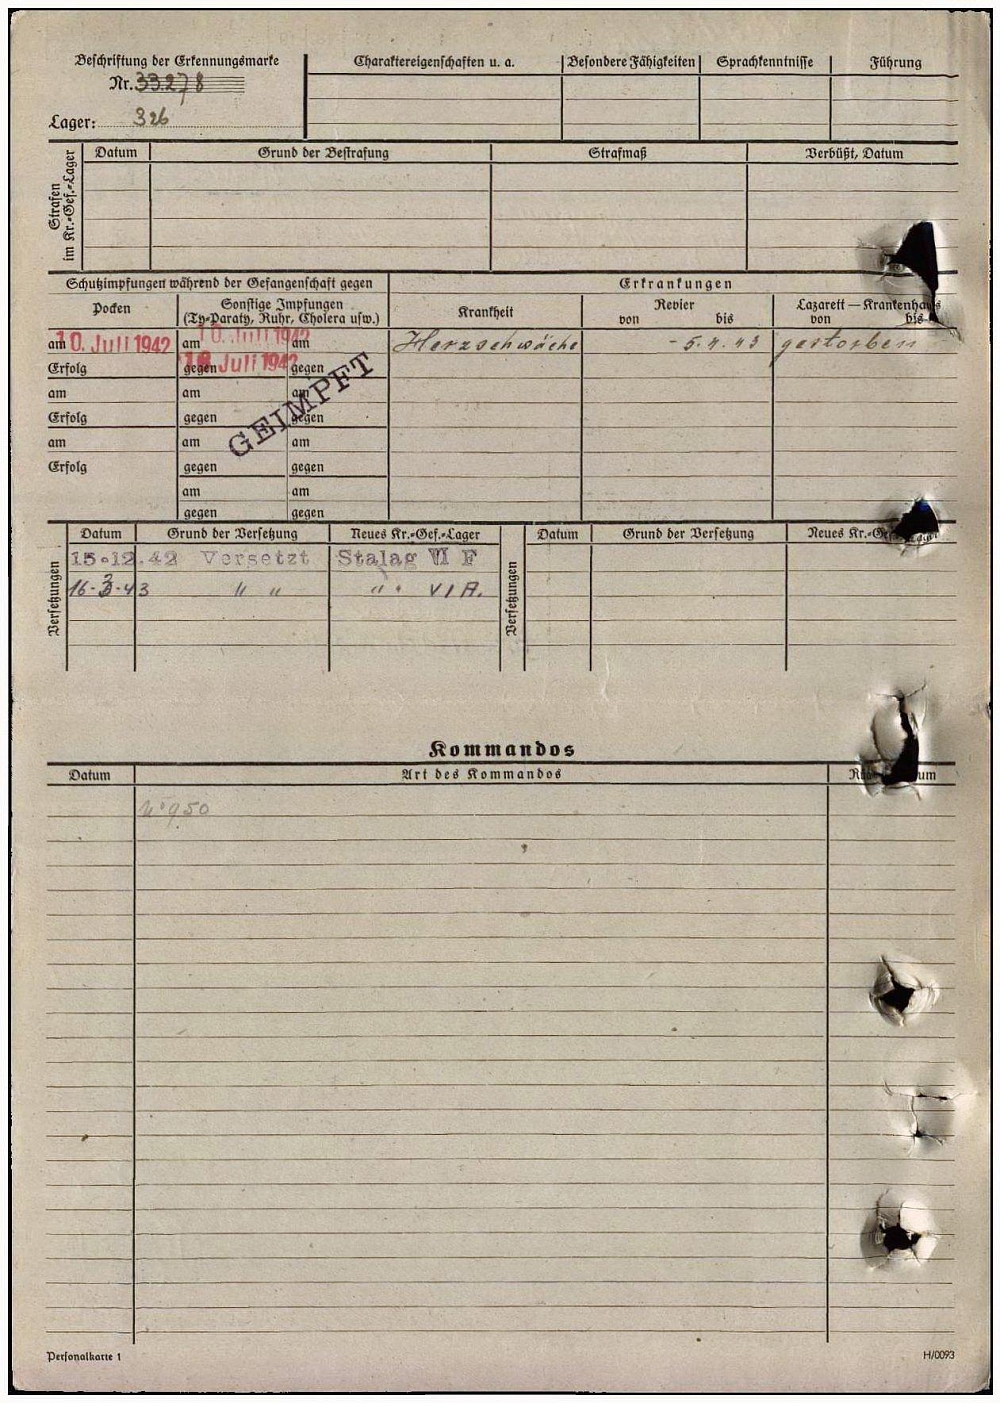 Beschriftung der Erkennungsmarke
Nr. 33278
Lager: 326
Charaktereigenschaften u. a. Besondere Fähigkeiten Sprachkenntnisse Führung
Strafen im Kr.-Gef.-Lager
Datum Grund der Bestrafung Strafmaß Verbüßt, Datum
Schutzimpfungen während der Gefangenschaft gegen Erkrankungen
Pocken Sonstige Impfungen (Ty-Paraty, Ruhr, Cholera usw.) Krankheit Revier von bis Lazarett — Krankenhaus von bis
am 10. Juli 1942 am 10. Juli 1942 am Herzschwäche - 5.4.43 gestorben
Erfolg gegen Juli 1942 gegen
am am am
GEIMPFT
Erfolg gegen gegen
am am am
Erfolg gegen gegen
am am
gegen gegen
Versetzungen
Datum Grund der Versetzung Neues Kr.-Gef.-Lager
15.12.42 Versetzt Stalag VI F
16.3.43 " " " " VI A.
Versetzungen
Datum Grund der Versetzung Neues Kr.-Gef.-Lager
Kommandos
Datum Art des Kommandos
N° 950
Personalkarte 1 H/0093